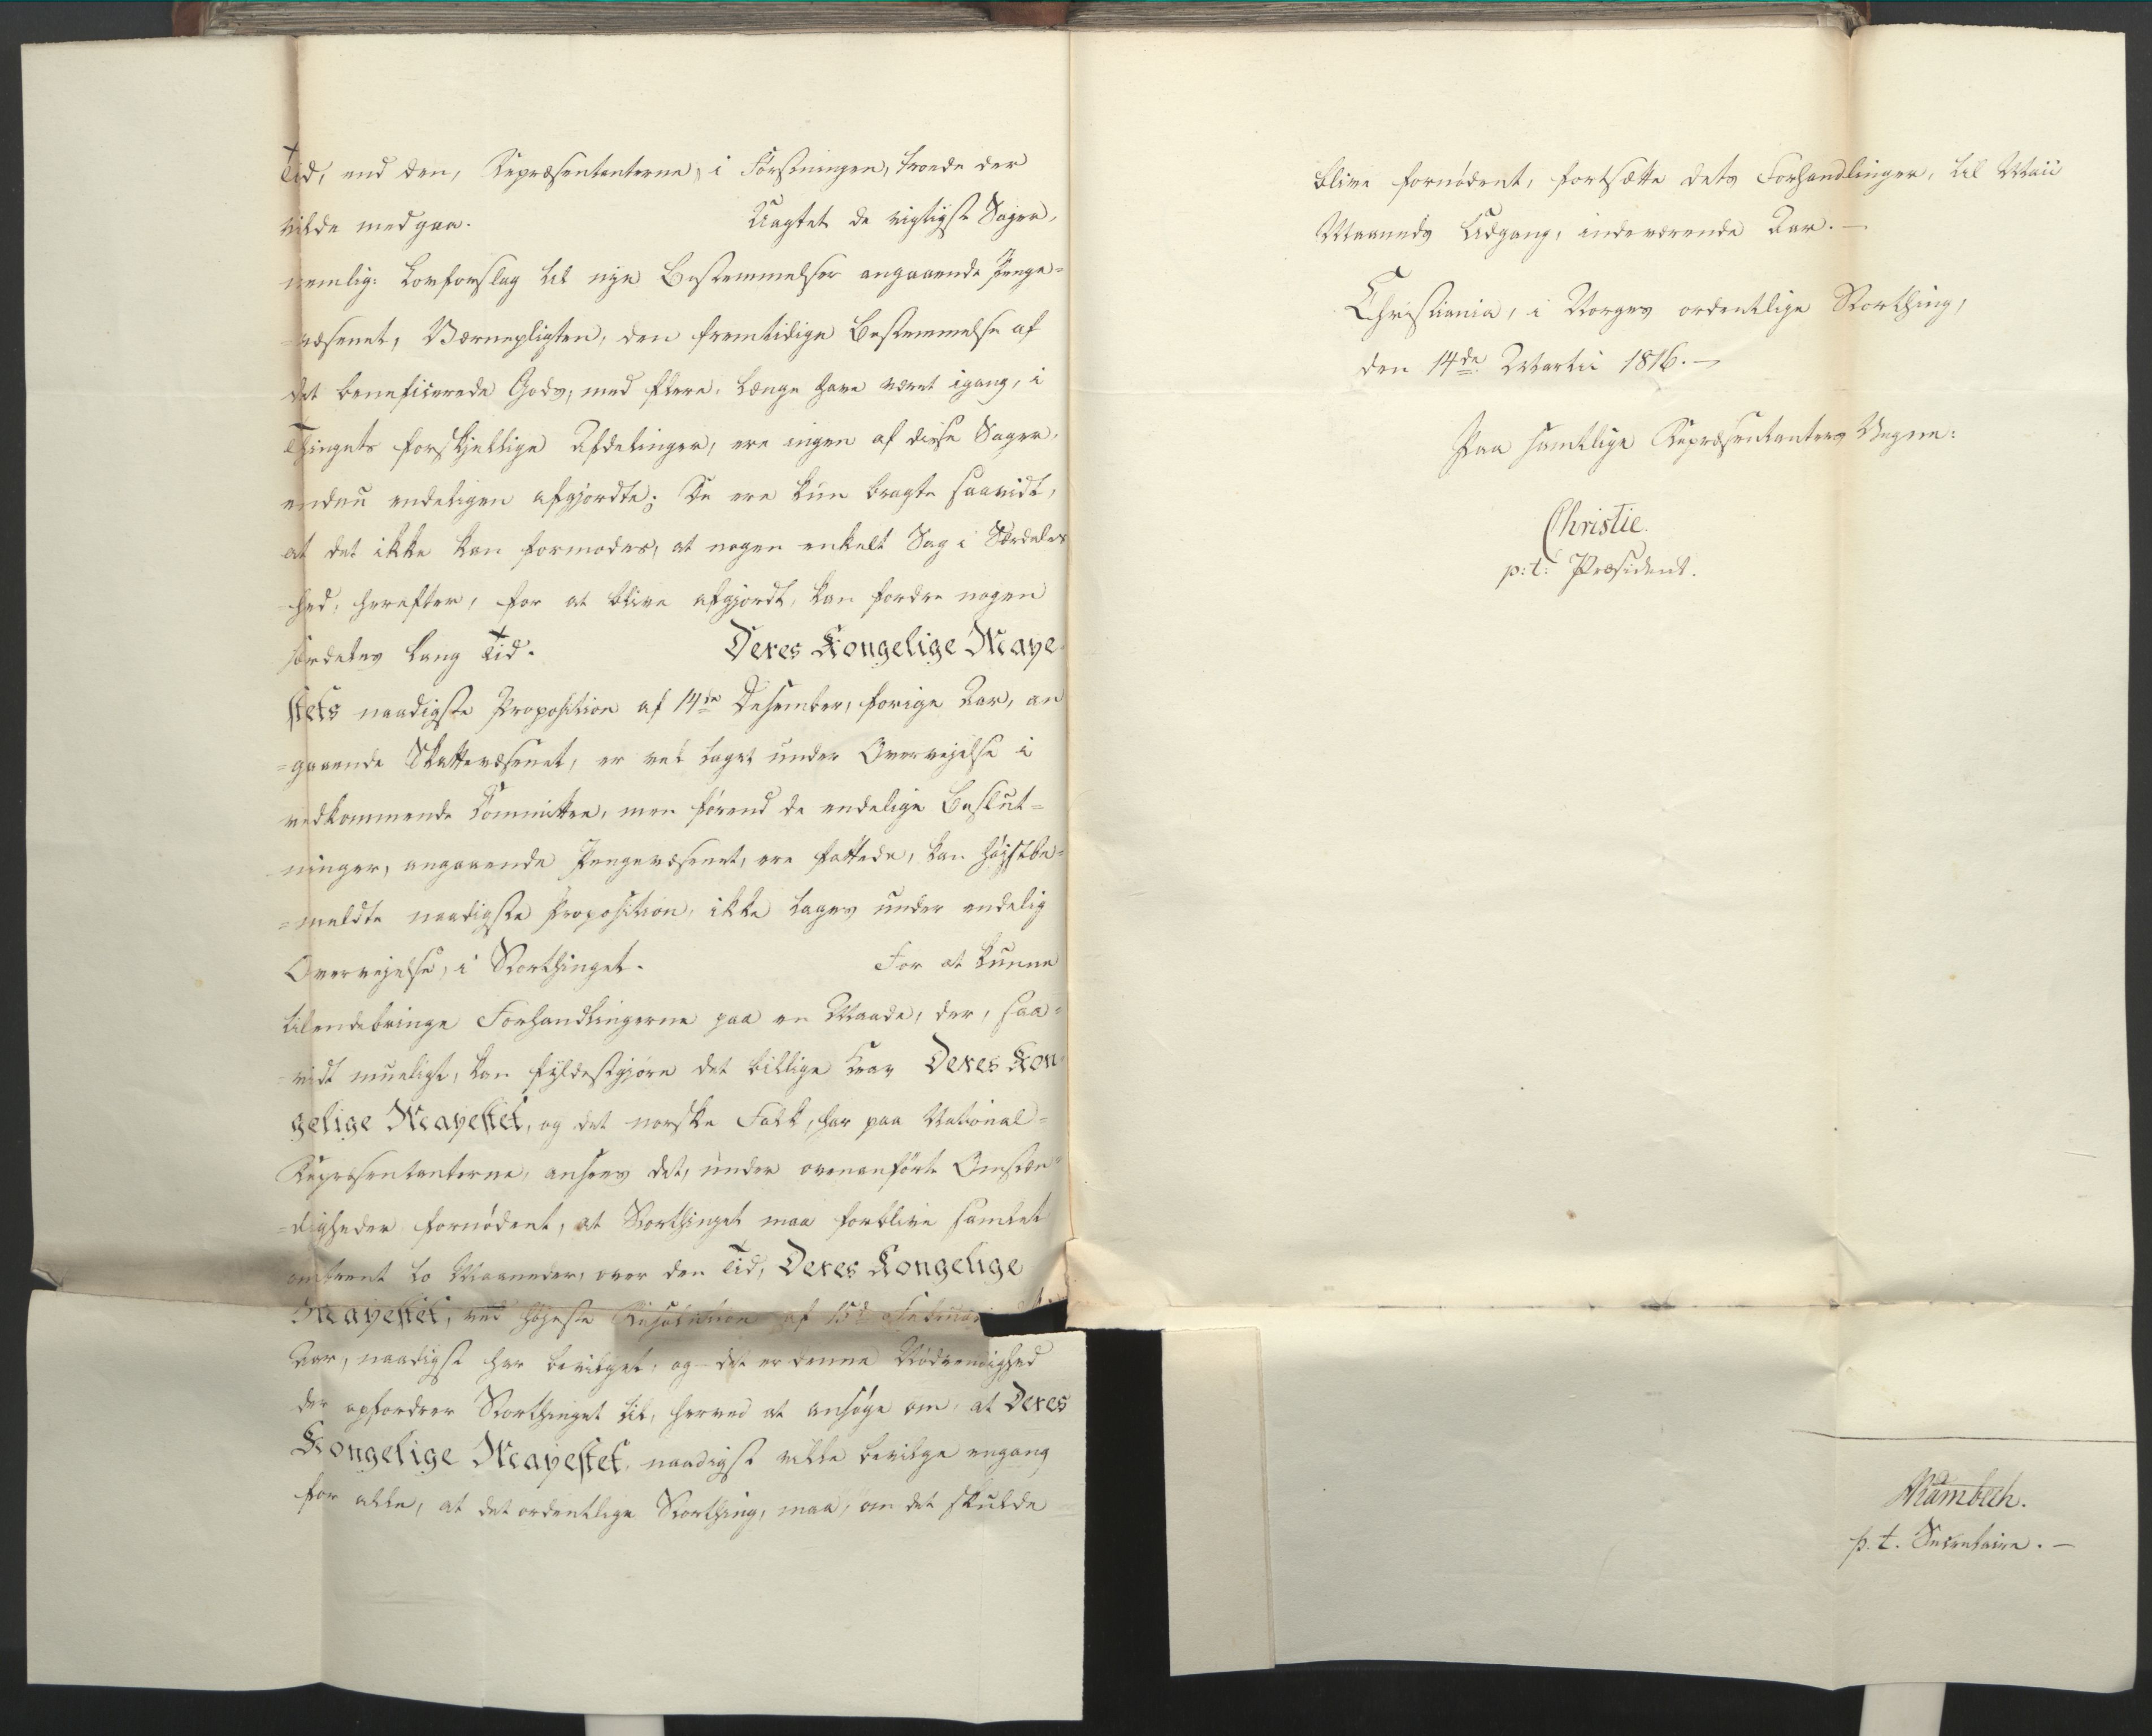 Tid, end den, Repræsentanterne, i Førstningen, troede der
vilde medgaa. Uagtet de vigtigste Sager,
nemlig: Lovforslag til nye Bestemmelser angaaende Penge=
=væsenet, Værnepligten, den fremtidige Bestemmelse af
det beneficerede Gods, med flere, længe have været igang, i
Thingets forskjellige Afdelinger, ere ingen af disse Sager,
endnu endeligen afgjordte; De ere kun bragte saavidt,
at det ikke kan formodes, at nogen enkelt Sag i Særdeles
=hed, herefter, for at blive afgjordt, kan fordre nogen
særdeles lang Tid. Deres Kongelige Maye
stets naadigste Proposition af 14de Desember, forige Aar, an
=gaaende Skattevæsenet, er vel taget under Overvejelse i
vedkommende Committee, men førend de endelige Beslut=
ninger, angaaende Pengevæsenet, ere fattede, kan højstbe=
=meldte naadigste Proposition, ikke tages under endelig
Overvejelse, i Storthinget. For at kunne
tilendebringe Forhandlingerne paa en Maade, der, saa=
=vidt mueligt, kan fyldestgjøre det billige Krav Deres Kon
gelige Mayestet, og det norske Folk, har paa National=
Repræsentanterne, ansees det, under ovenanførte Omstæn=
=digheder fornødent, at Storthinget maa forblive samlet
omtrent to Maaneder, over den Tid, Deres Kongelige
Mayestet, ved højeste Resolution af 15de Februar
Aar, naadigst har bevilget, og det er denne Nødvendighed
der opfordrer Storthinget til, herved at ansøge om, at Deres
Kongelige Mayestet, naadigst ville bevilge engang
for alle, at det ordentlige Storthing, maa, om det skulde
blive fornødent, fortsætte dets Forhandlinger, til Maii
Maaneds Udgang, indeværende Aar. —
Christiania, i Norges ordentlige Storthing,
den 14de Martii 1816. —
Paa samtlige Repræsentanters Vegne:
Christie.
p: t: Præsident.
p. t. Secretaire. —